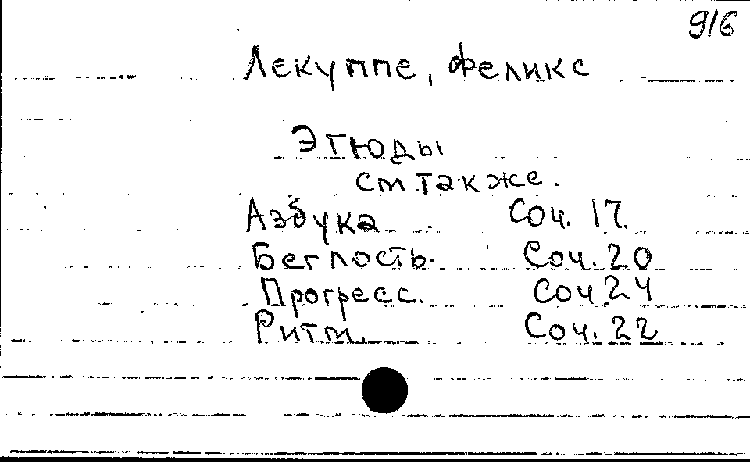 916
Лекуппе, Феликс
Этюды
см. также.
Азбука Соч. 17.
Беглость. Соч. 20
Прогресс. Соч 24
Ритм. Соч. 22